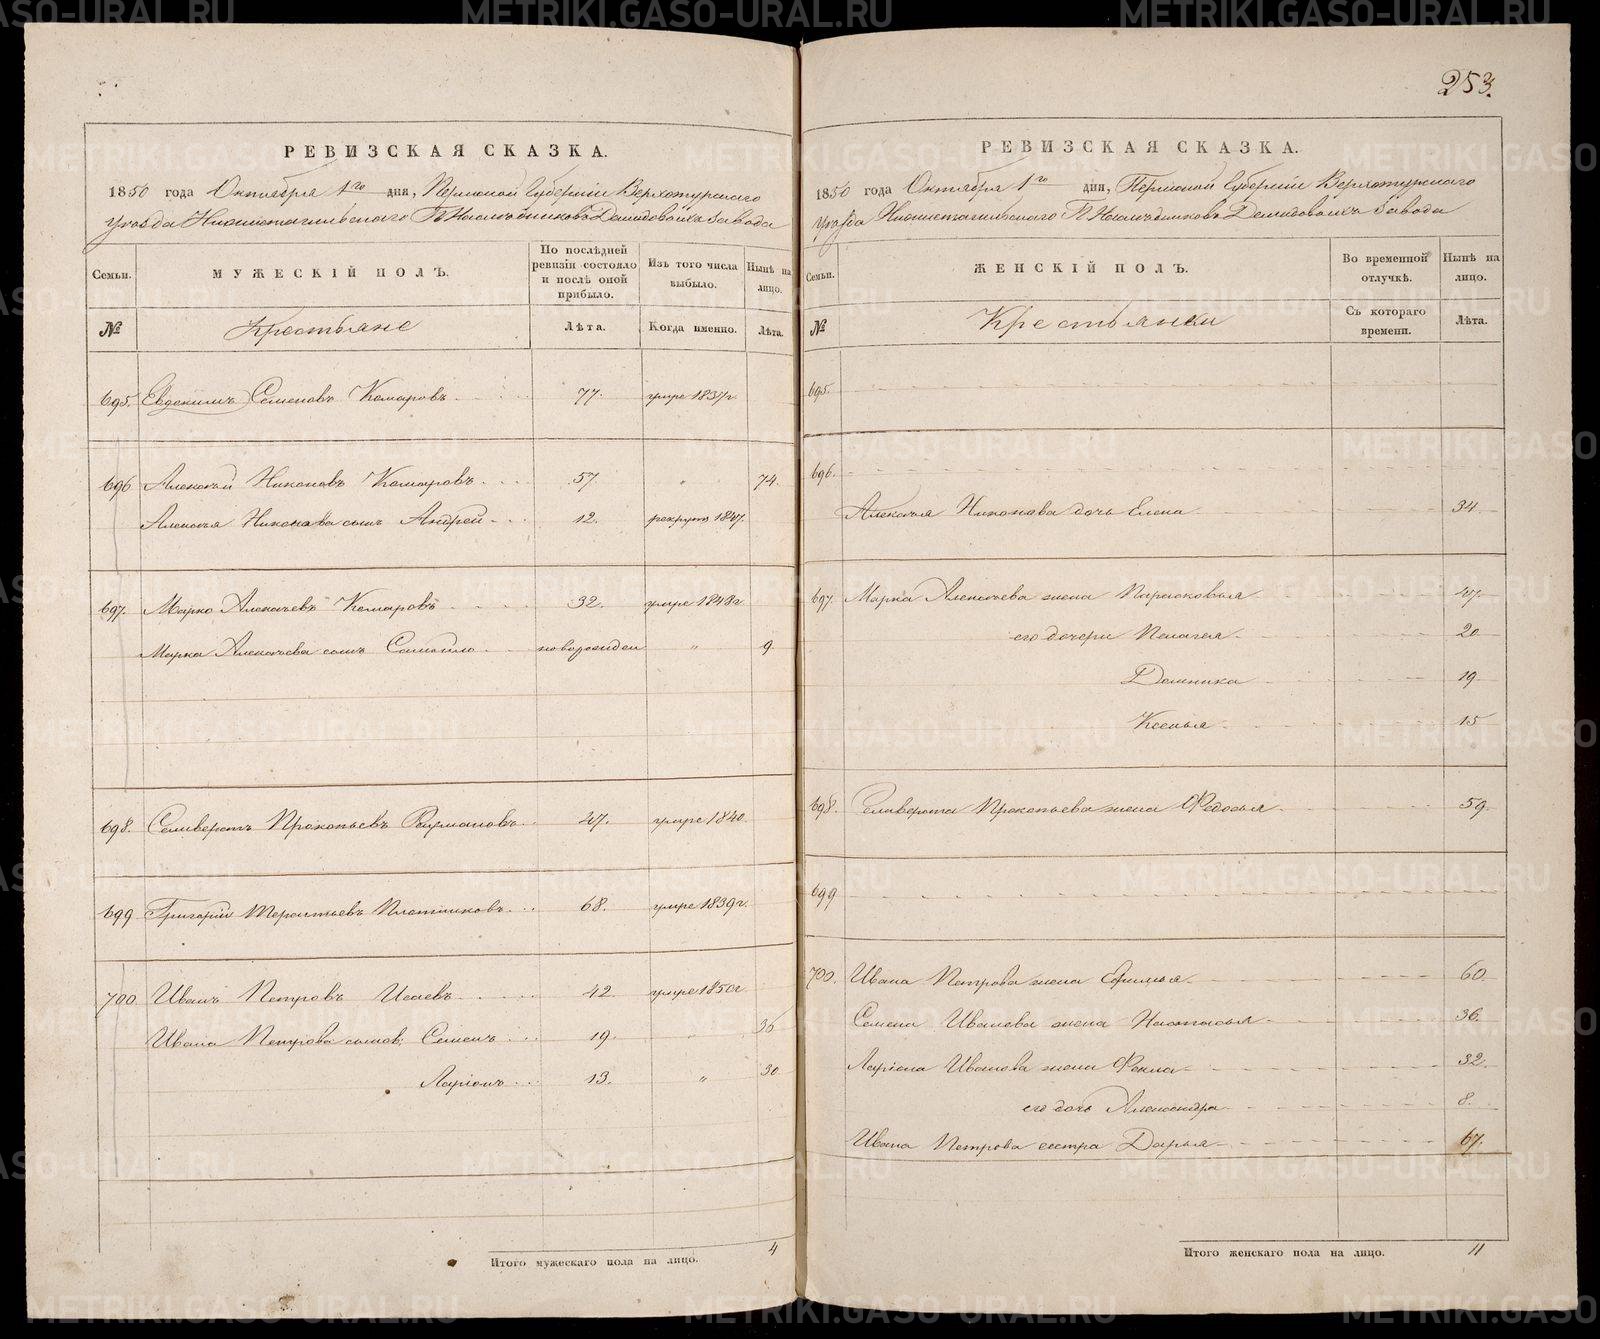 253.
РЕВИЗСКАЯ СКАЗКА.
1850 года Октября 1го дня, Пермской Губернiи Верхотурскаго
уѣзда Нижнетагильскаго Гг Наслѣдниковъ Демидовыхъ завода
Семьи.
МУЖЕСКIЙ ПОЛЪ.
По послѣдней ревизiи состояло и послѣ оной прибыло.
Изъ того числа выбыло.
Нынѣ на лицо.
№
Крестьяне
Лѣта.
Когда именно.
Лѣта.
695. Евдокимъ Семеновъ Комаровъ 77. умре 1837г
696 Алексѣй Никоновъ Комаровъ 57. " 74.
Алексѣя Никонова сынъ Андрей 12. рекрут 1847.
697. Марко Алексѣевъ Комаровъ 32. умре 1848г
Марка Алексѣева сынъ Самойло новорожден " 9.
698. Селиверстъ Прокопьевъ 47. умре 1840.
699 Григорiй Терентьевъ Плотниковъ 68. умре 1839г.
700 Иванъ Петровъ Исаевъ 42 умре 1850г
Ивана Петрова сынов: Семенъ 19. " 36
Ларiонъ 13. " 30
Итого мужескаго пола на лицо. 4
РЕВИЗСКАЯ СКАЗКА.
1850 года Октября 1го дня, Пермской Губернiи Верхотурскаго
уѣзда Нижнетагильскаго Гг Наслѣдниковъ Демидовыхъ завода
Семьи.
ЖЕНСКIЙ ПОЛЪ.
Во временной отлучкѣ.
Нынѣ на лицо.
№
Крестьянки
Съ котораго времени.
Лѣта.
695.
696.
Алексѣя Никонова дочь Елена 34
697. Марка Алексѣева жена Парасковья 47.
его дочери Пелагея 20
Домника 19
Ксенья 15
698. Селиверста Прокопьева жена Федосья 59.
699
700. Ивана Петрова жена Ефимья 60
Семена Иванова жена Настасья 36.
Ларiона Иванова жена Фекла 32.
его дочь Александра 8.
Ивана Петрова сестра Дарья 67.
Итого женскаго пола на лицо. 11
METRIKI.GASO-URAL.RU